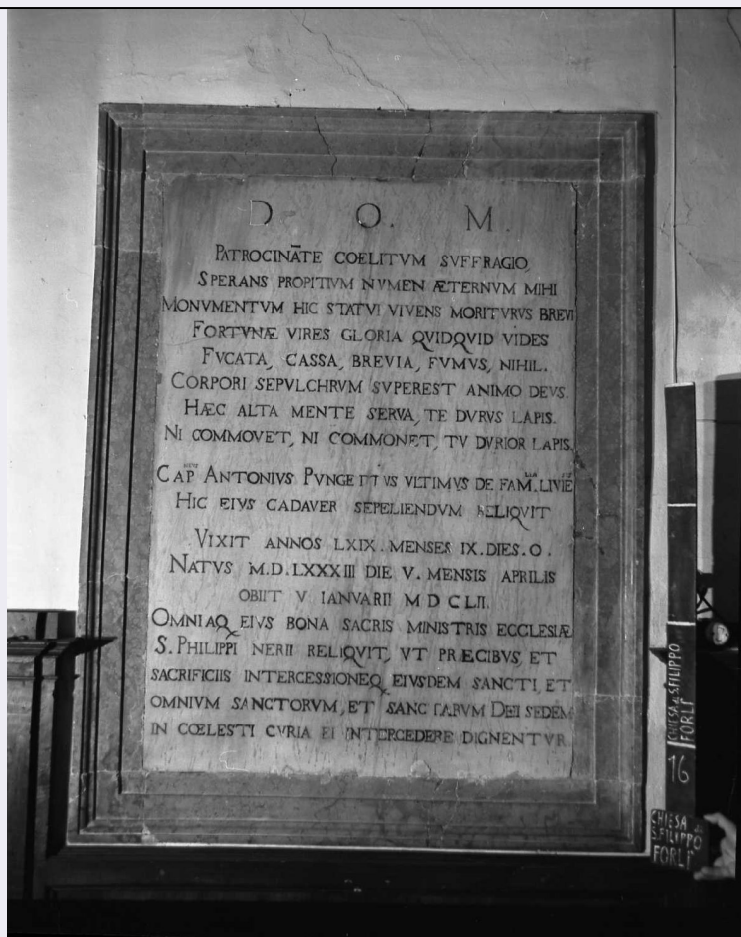 D. O. M.
PATROCINĀTE COELITVM SVFFRAGIO,
SPERANS PROPITIVM NVMEN ÆTERNVM MIHI
MONVMENTVM HIC STATVI VIVENS MORITVRVS BREVI
FORTVNÆ VIRES GLORIA QVIDQVID VIDES
FVCATA, CASSA, BREVIA, FVMVS, NIHIL.
CORPORI SEPVLCHRVM SVPEREST ANIMO DEVS.
HÆC ALTA MENTE SERVA, TE DVRVS LAPIS.
NI COMMOVET, NI COMMONET, TV DVRIOR LAPIS.
ANTONIVS PVNGETTVS VLTIMVS DE
HIC EIVS CADAVER SEPELIENDVM RELIQVIT
VIXIT ANNOS LXIX. MENSES IX. DIES. O.
NATVS M.D.LXXXIII DIE V. MENSIS APRILIS
OBIIT V IANVARII M D C LII.
OMNIAQ EIVS BONA SACRIS MINISTRIS ECCLESIÆ
S. PHILIPPI NERII RELIQVIT, VT PRÆCIBVS, ET
SACRIFICIIS INTERCESSIONEQ EIVSDEM SANCTI, ET
OMNIVM SANCTORVM, ET SANCTARVM DEI SEDEM
IN CŒLESTI CVRIA EI INTERCEDERE DIGNENTVR
CHIESA di S.FILIPPO
FORLÌ
16
CHIESA di
S.FILIPPO
FORLÌ